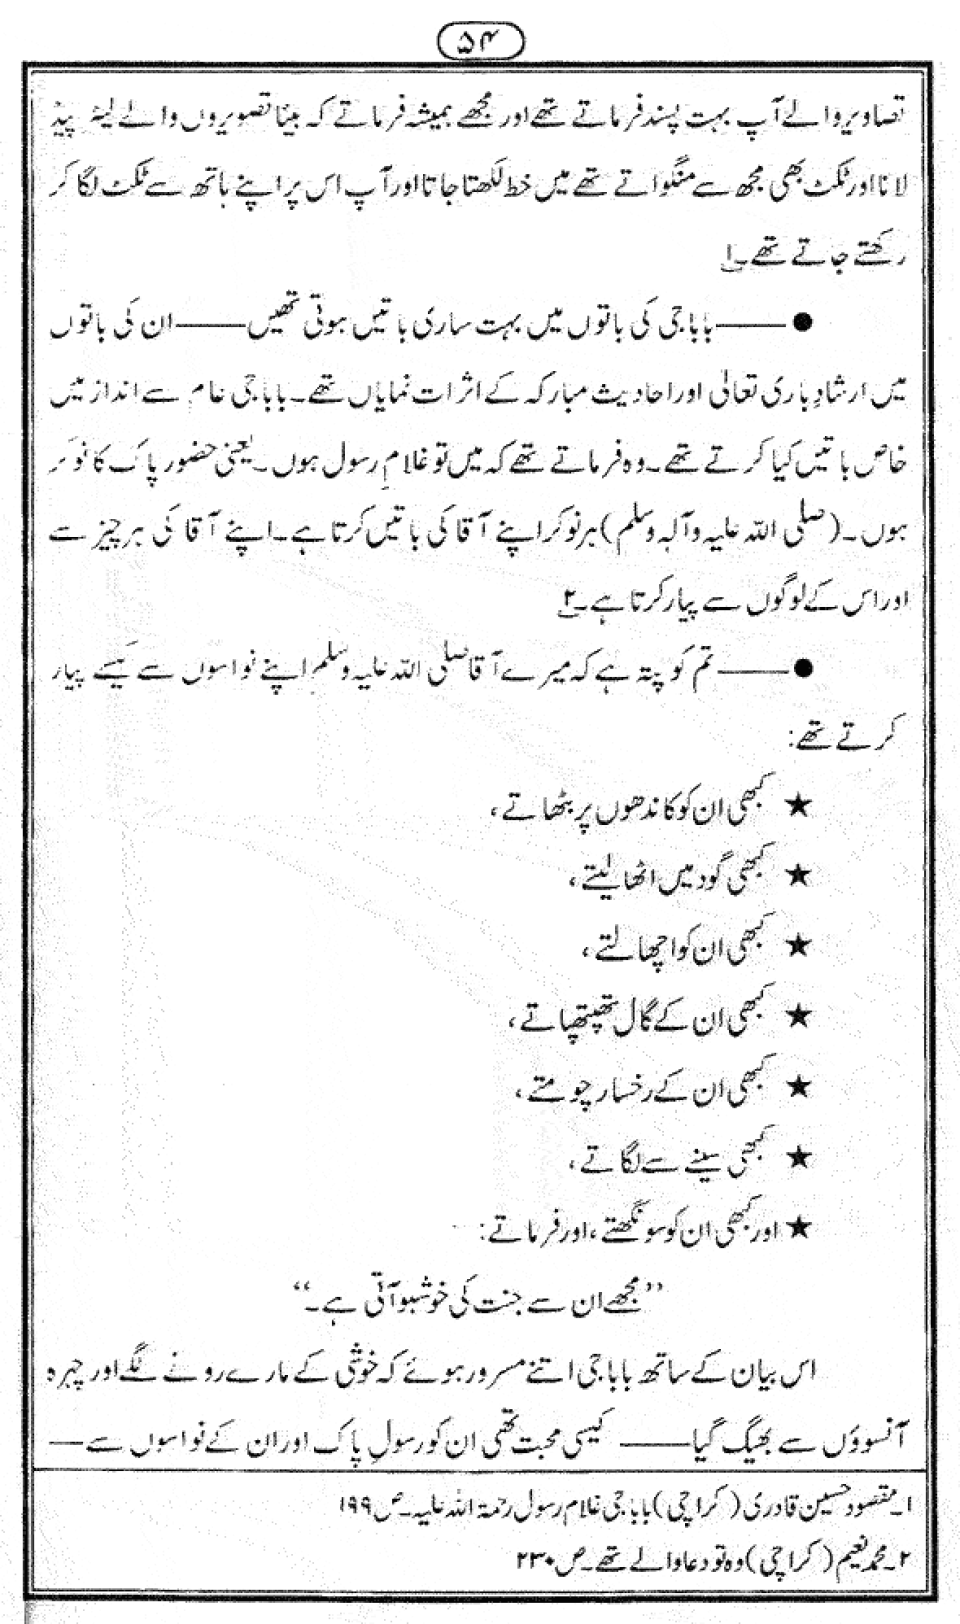 ۵۴
تصاویر والے آپ بہت پسند فرماتے تھے اور مجھے ہمیشہ فرماتے کہ بیٹا تصویروں والے لیٹر پیڈ
لانا اور ٹکٹ بھی مجھ سے منگواتے تھے میں خط لکھتا جاتا اور آپ اس پر اپنے ہاتھ سے ٹکٹ لگا کر
رکھتے جاتے تھے۔۱
●——بابا جی کی باتوں میں بہت ساری باتیں ہوتی تھیں——ان کی باتوں
میں ارشادِ باری تعالٰی اور احادیث مبارکہ کے اثرات نمایاں تھے۔ بابا جی عام سے انداز میں
خاص باتیں کیا کرتے تھے۔ وہ فرماتے تھے کہ میں تو غلامِ رسول ہوں۔ یعنی حضور پاک کا نوکر
ہوں۔ (صلی اللہ علیہ وآلہ وسلم) ہر نوکر اپنے آقا کی باتیں کرتا ہے۔ اپنے آقا کی ہر چیز سے
اور اس کے لوگوں سے پیار کرتا ہے۔۲
●——تم کو پتہ ہے کہ میرے آقا صلی اللہ علیہ وسلم اپنے نواسوں سے کیسے پیار
کرتے تھے:
★ کبھی ان کو کاندھوں پر بٹھاتے،
★ کبھی گود میں اٹھا لیتے،
★ کبھی ان کو اچھالتے،
★ کبھی ان کے گال تھپتھپاتے،
★ کبھی ان کے رخسار چومتے،
★ کبھی سینے سے لگاتے،
★ اور کبھی ان کو سونگھتے، اور فرماتے:
”مجھے ان سے جنت کی خوشبو آتی ہے۔“
اس بیان کے ساتھ بابا جی اتنے مسرور ہوئے کہ خوشی کے مارے رونے لگے اور چہرہ
آنسوؤں سے بھیگ گیا——کیسی محبت تھی ان کو رسولِ پاک اور ان کے نواسوں سے—
۱۔ مقصود حسین قادری (کراچی) بابا جی غلام رسول رحمۃ اللہ علیہ۔ ص ۱۹۹
۲۔ محمد نعیم (کراچی) وہ تو دعا والے تھے۔ ص ۲۳۰